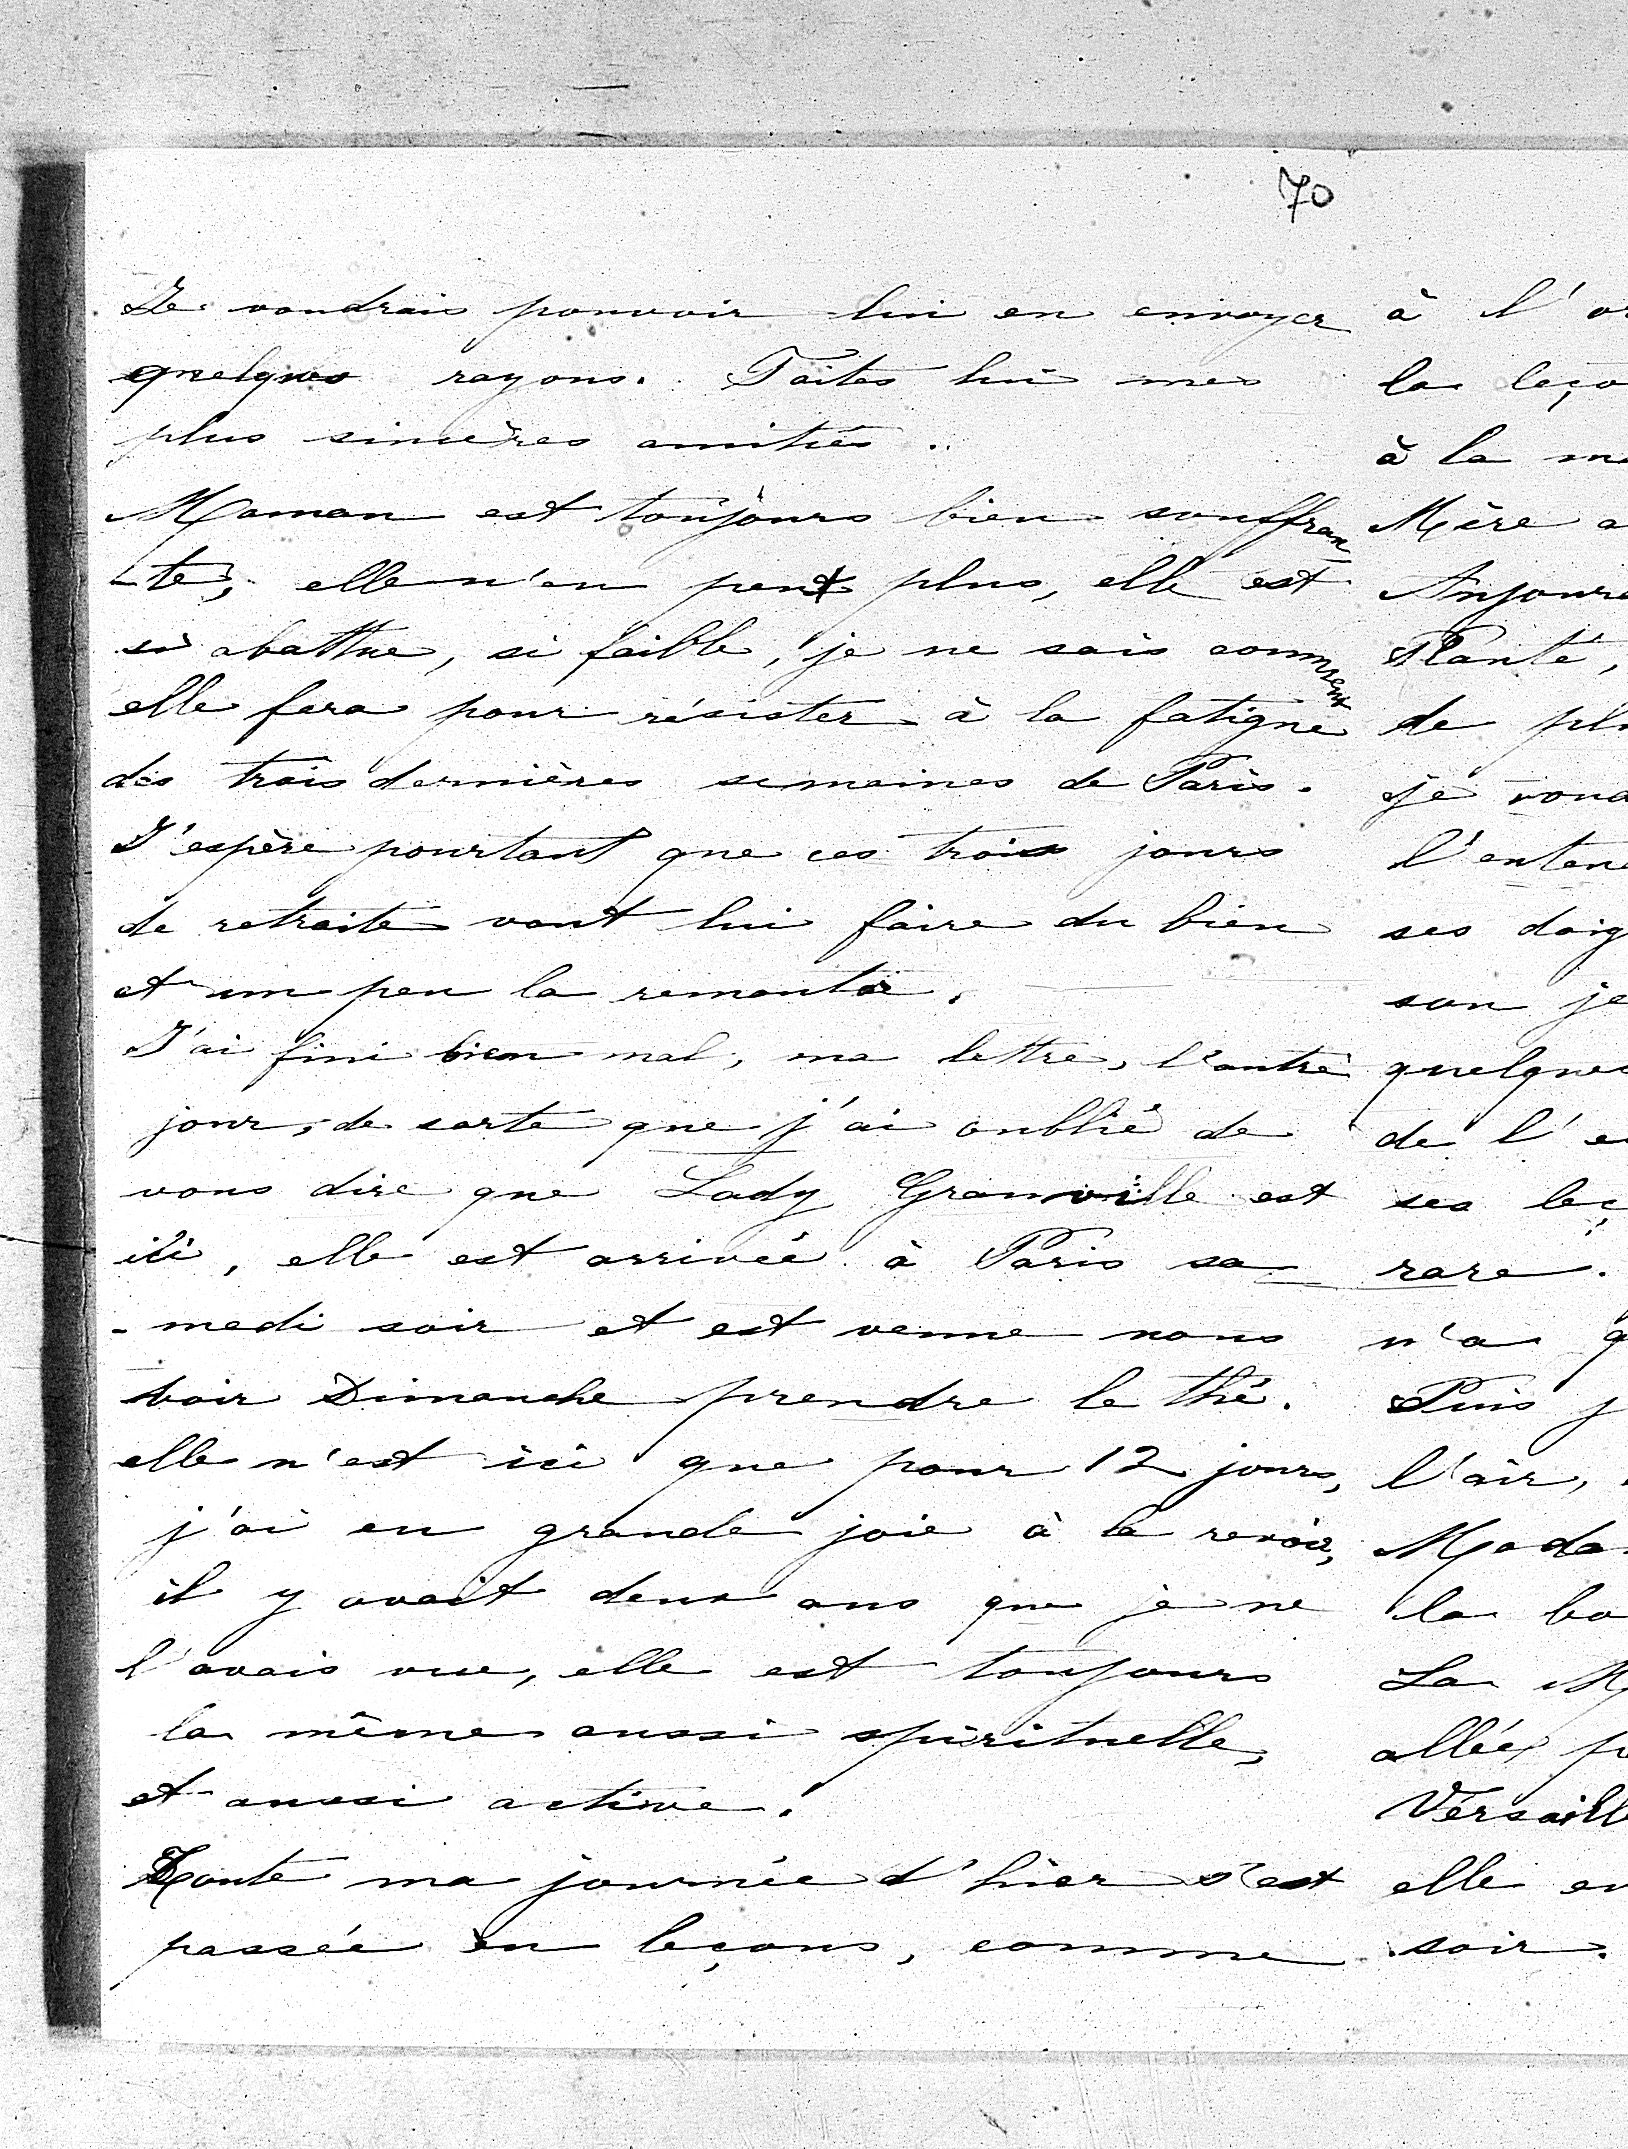 70
Je voudrais pouvoir lui en envoyer
quelques rayons. Faites lui mes
plus sincères amitiés.
Maman est toujours bien souffran
-te, elle n'en peut plus, elle est
si abattue, si faible, je ne sais comment
elle fera pour résister à la fatigue
des trois dernières semaines de Paris.
J'espère pourtant que ces trois jours
de retraite vont lui faire du bien
et un peu la remonter.
J'ai fini bien mal, ma lettre, l'autre
jour, de sorte que j'ai oublié de
vous dire que Lady Granville est
ici, elle est arrivée à Paris sa
-medi soir et est venue nous
voir Dimanche prendre le thé.
elle n'est ici que pour 12 jours,
j'ai eu grande joie à la revoir,
il y avait deux ans que je ne
l'avais vue, elle est toujours
la même aussi spirituelle,
et aussi active.
Toute ma journée d'hier s'est
passée en leçons, comme
à l'
la leço
à la
Mère a
Aujour
Planté,
de pl
je voud
l'enten
ses doig
son je
quelque
de l'e
ses leç
rare.
n'a q
Puis j
l'air,
Mada
la bo
La M
allée p
Versaill
elle en
soir.